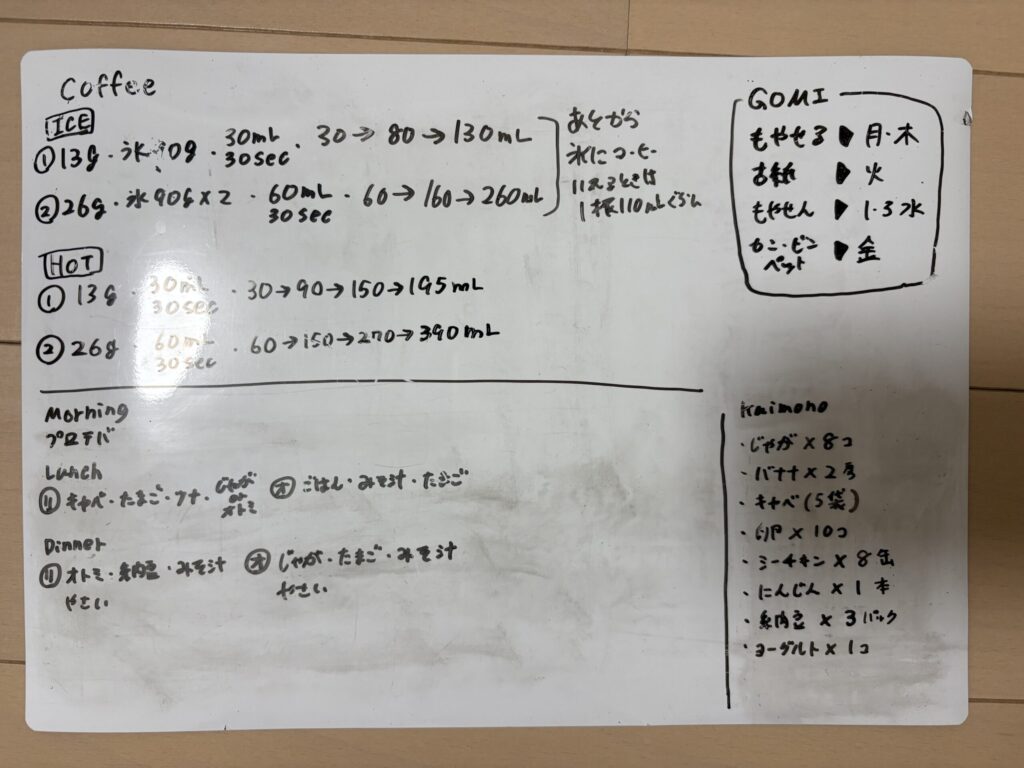 Coffee
ICE
① 13g・氷90g・30mL 30sec・30→80→130mL
② 26g・氷90g×2・60mL 30sec・60→160→260mL
あとから
氷にコーヒー
いえるときは
1杯110mLぐらい
HOT
① 13g・30mL 30sec・30→90→150→195mL
② 26g・60mL 30sec・60→150→270→390mL
GOMI
もやせる▶月・木
古紙▶火
もやせん▶1・3水
カン・ビン
ペット▶金
Morning
プロテバ
Lunch
リ キャベ・たまご・ツナ・じゃが or オトミ
オ ごはん・みそ汁・たまご
Dinner
リ オトミ・納豆・みそ汁
やさい
オ じゃが・たまご・みそ汁
やさい
Kaimono
・じゃが×8コ
・バナナ×2房
・キャベ(5袋)
・卵×10コ
・シーチキン×8缶
・にんじん×1本
・納豆×3パック
・ヨーグルト×1コ